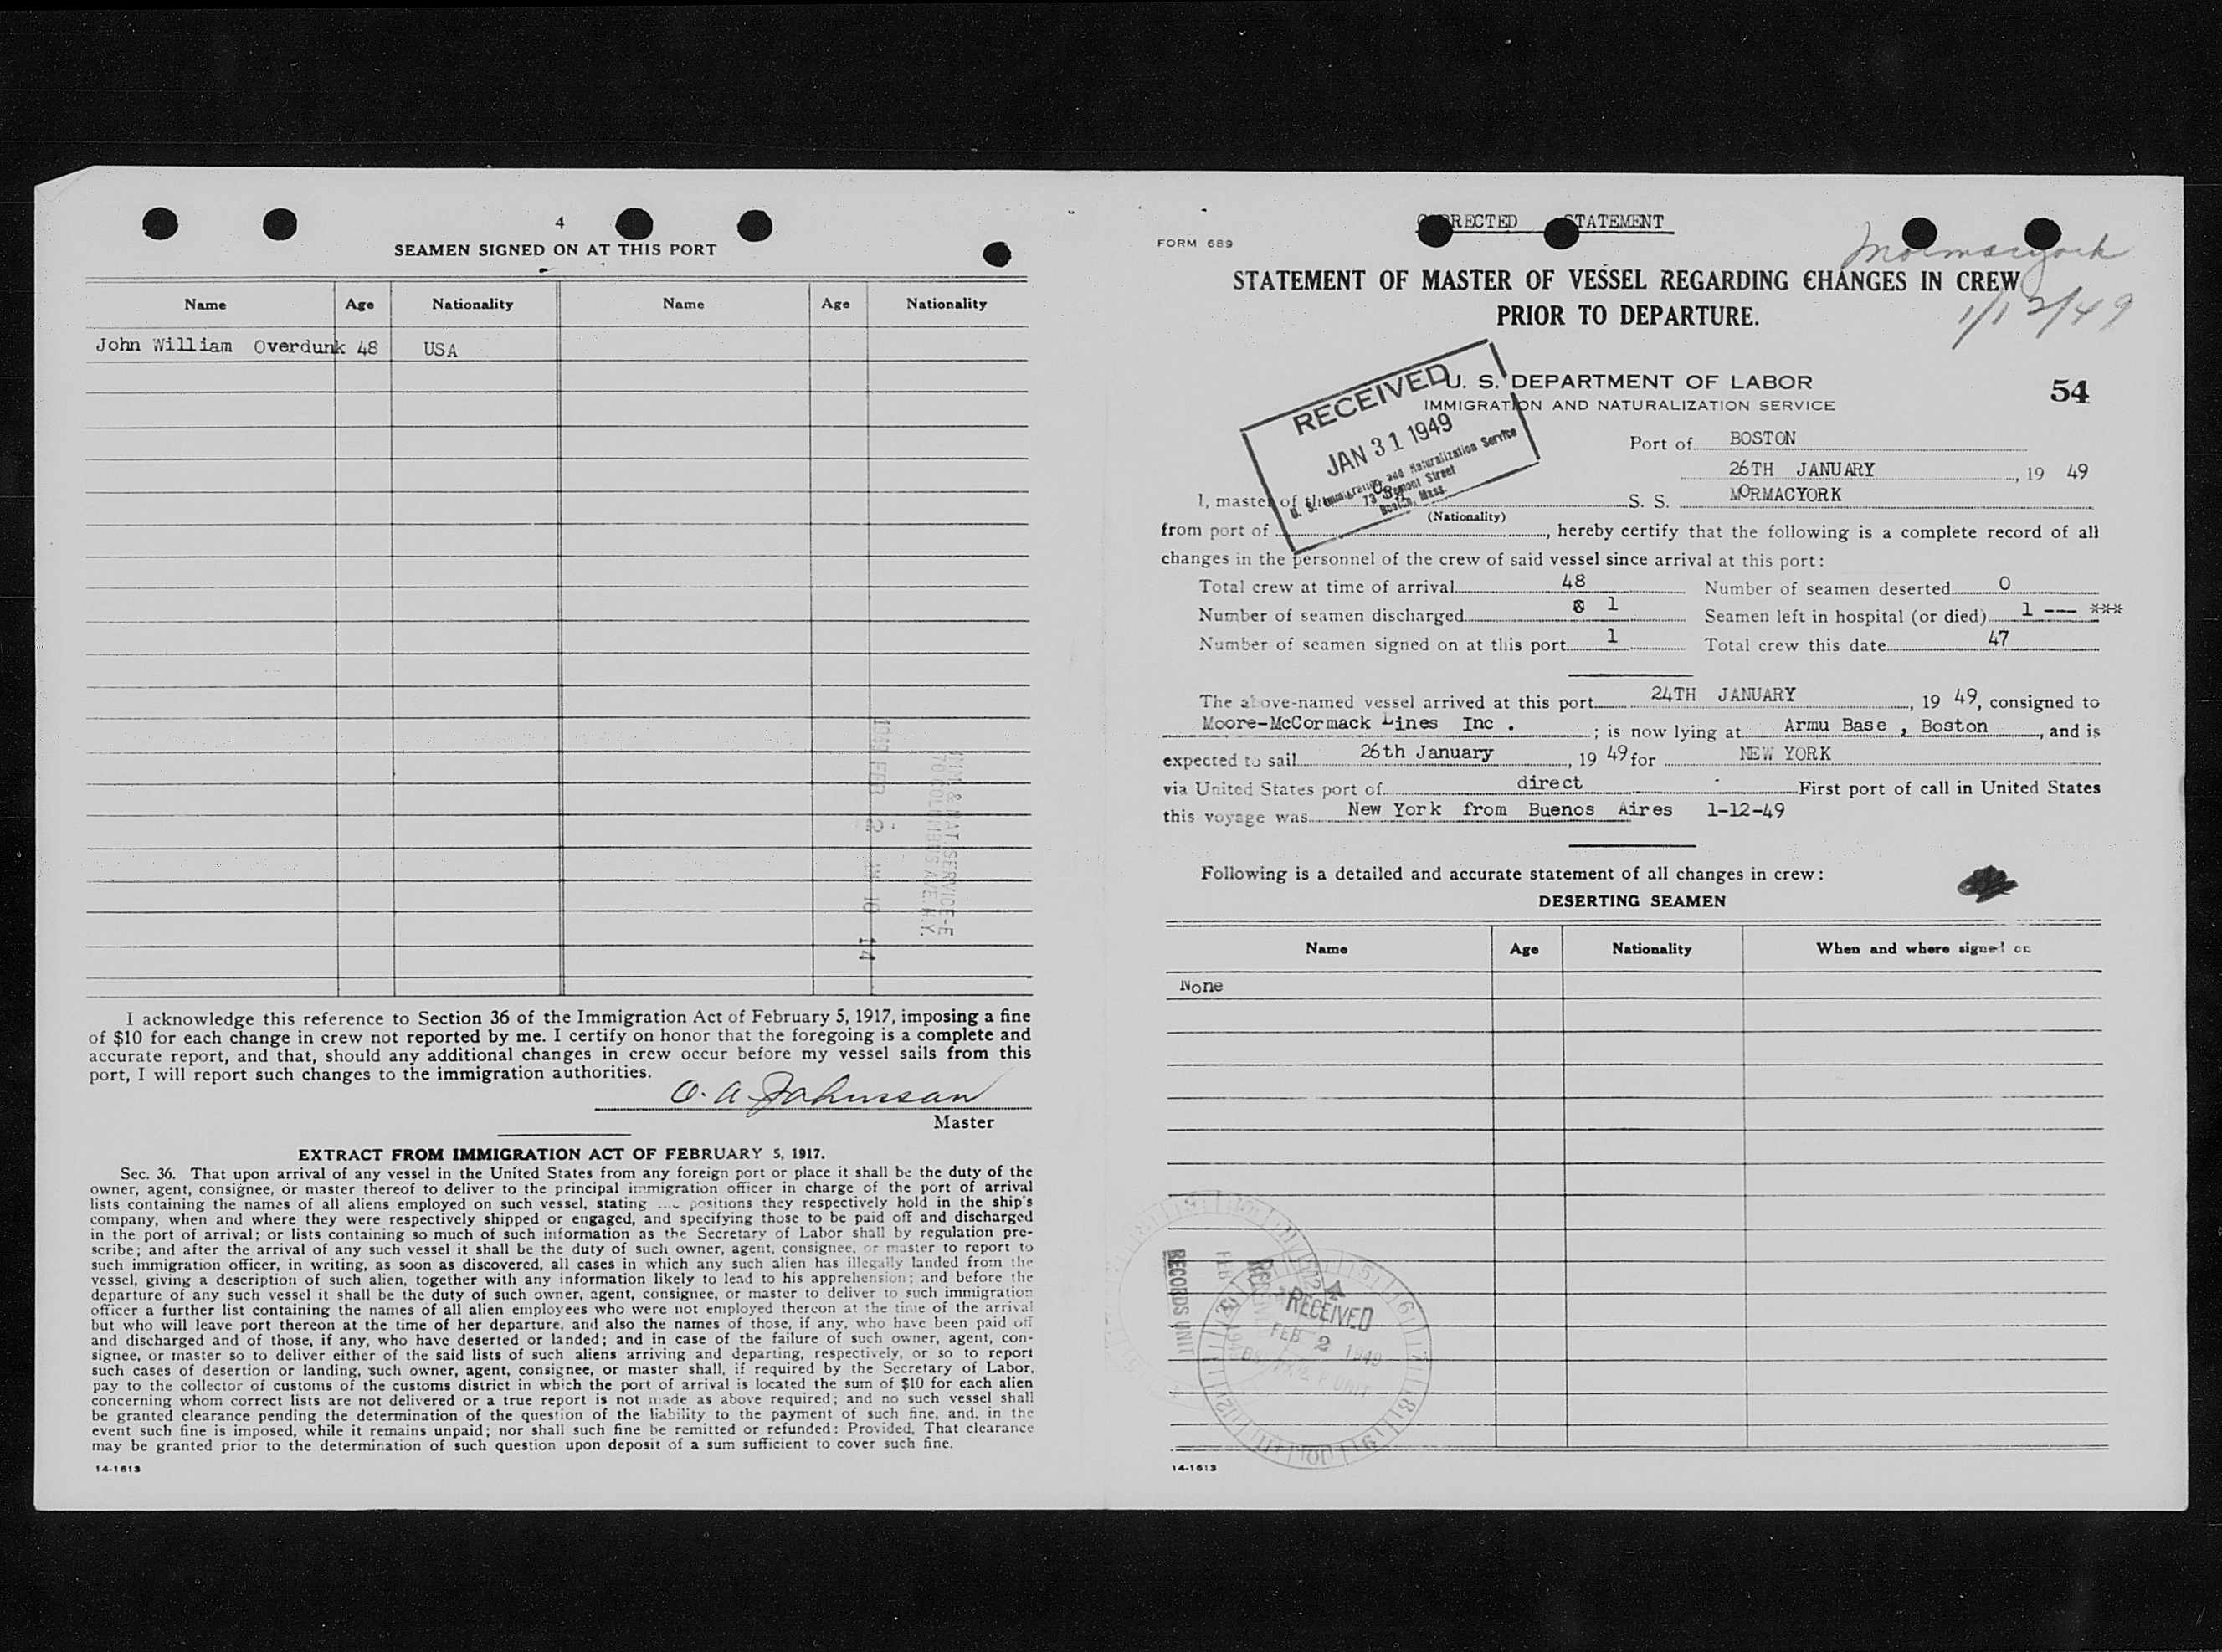 4
SEAMEN SIGNED ON AT THIS PORT
Name Age Nationality Name Age Nationality
John William Overdunk 48 USA
I acknowledge this reference to Section 36 of the Immigration Act of February 5, 1917, imposing a fine
of $10 for each change in crew not reported by me. I certify on honor that the foregoing is a complete and
accurate report, and that, should any additional changes in crew occur before my vessel sails from this
port, I will report such changes to the immigration authorities.
O. A. Johnssan
Master
EXTRACT FROM IMMIGRATION ACT OF FEBRUARY 5, 1917.
Sec. 36. That upon arrival of any vessel in the United States from any foreign port or place it shall be the duty of the
owner, agent, consignee, or master thereof to deliver to the principal immigration officer in charge of the port of arrival
lists containing the names of all aliens employed on such vessel, stating positions they respectively hold in the ship's
company, when and where they were respectively shipped or engaged, and specifying those to be paid off and discharged
in the port of arrival; or lists containing so much of such information as the Secretary of Labor shall by regulation pre-
scribe; and after the arrival of any such vessel it shall be the duty of such owner, agent, consignee, or master to report to
such immigration officer, in writing, as soon as discovered, all cases in which any such alien has illegally landed from the
vessel, giving a description of such alien, together with any information likely to lead to his apprehension; and before the
departure of any such vessel it shall be the duty of such owner, agent, consignee, or master to deliver to such immigration
officer a further list containing the names of all alien employees who were not employed thereon at the time of the arrival
but who will leave port thereon at the time of her departure, and also the names of those, if any, who have been paid off
and discharged and of those, if any, who have deserted or landed; and in case of the failure of such owner, agent, con-
signee, or master so to deliver either of the said lists of such aliens arriving and departing, respectively, or so to report
such cases of desertion or landing, such owner, agent, consignee, or master shall, if required by the Secretary of Labor,
pay to the collector of customs of the customs district in which the port of arrival is located the sum of $10 for each alien
concerning whom correct lists are not delivered or a true report is not made as above required; and no such vessel shall
be granted clearance pending the determination of the question of the liability to the payment of such fine, and, in the
event such fine is imposed, while it remains unpaid; nor shall such fine be remitted or refunded: Provided, That clearance
may be granted prior to the determination of such question upon deposit of a sum sufficient to cover such fine.
14-1613
RECTED TATEMENT
FORM 689
Mormacyork
1/12/49
STATEMENT OF MASTER OF VESSEL REGARDING CHANGES IN CREW
PRIOR TO DEPARTURE.
RECEIVED
JAN 31 1949
U. S. Immigration and Naturalization Service
Boston, Mass.
U. S. DEPARTMENT OF LABOR
IMMIGRATION AND NATURALIZATION SERVICE
54
Port of BOSTON
26TH JANUARY, 19 49
I, master of the S. S. MORMACYORK
(Nationality)
from port of , hereby certify that the following is a complete record of all
changes in the personnel of the crew of said vessel since arrival at this port:
Total crew at time of arrival 48 Number of seamen deserted 0
Number of seamen discharged 1 Seamen left in hospital (or died) 1 --- ***
Number of seamen signed on at this port 1 Total crew this date 47
The above-named vessel arrived at this port 24TH JANUARY, 19 49, consigned to
Moore-McCormack Lines Inc . ; is now lying at Armu Base , Boston, and is
expected to sail 26th January, 19 49 for NEW YORK
via United States port of direct First port of call in United States
this voyage was New York from Buenos Aires 1-12-49
Following is a detailed and accurate statement of all changes in crew:
DESERTING SEAMEN
Name Age Nationality When and where signed on
None
RECORDS UNIT
RECEIVED
FEB 2 1949
14-1613